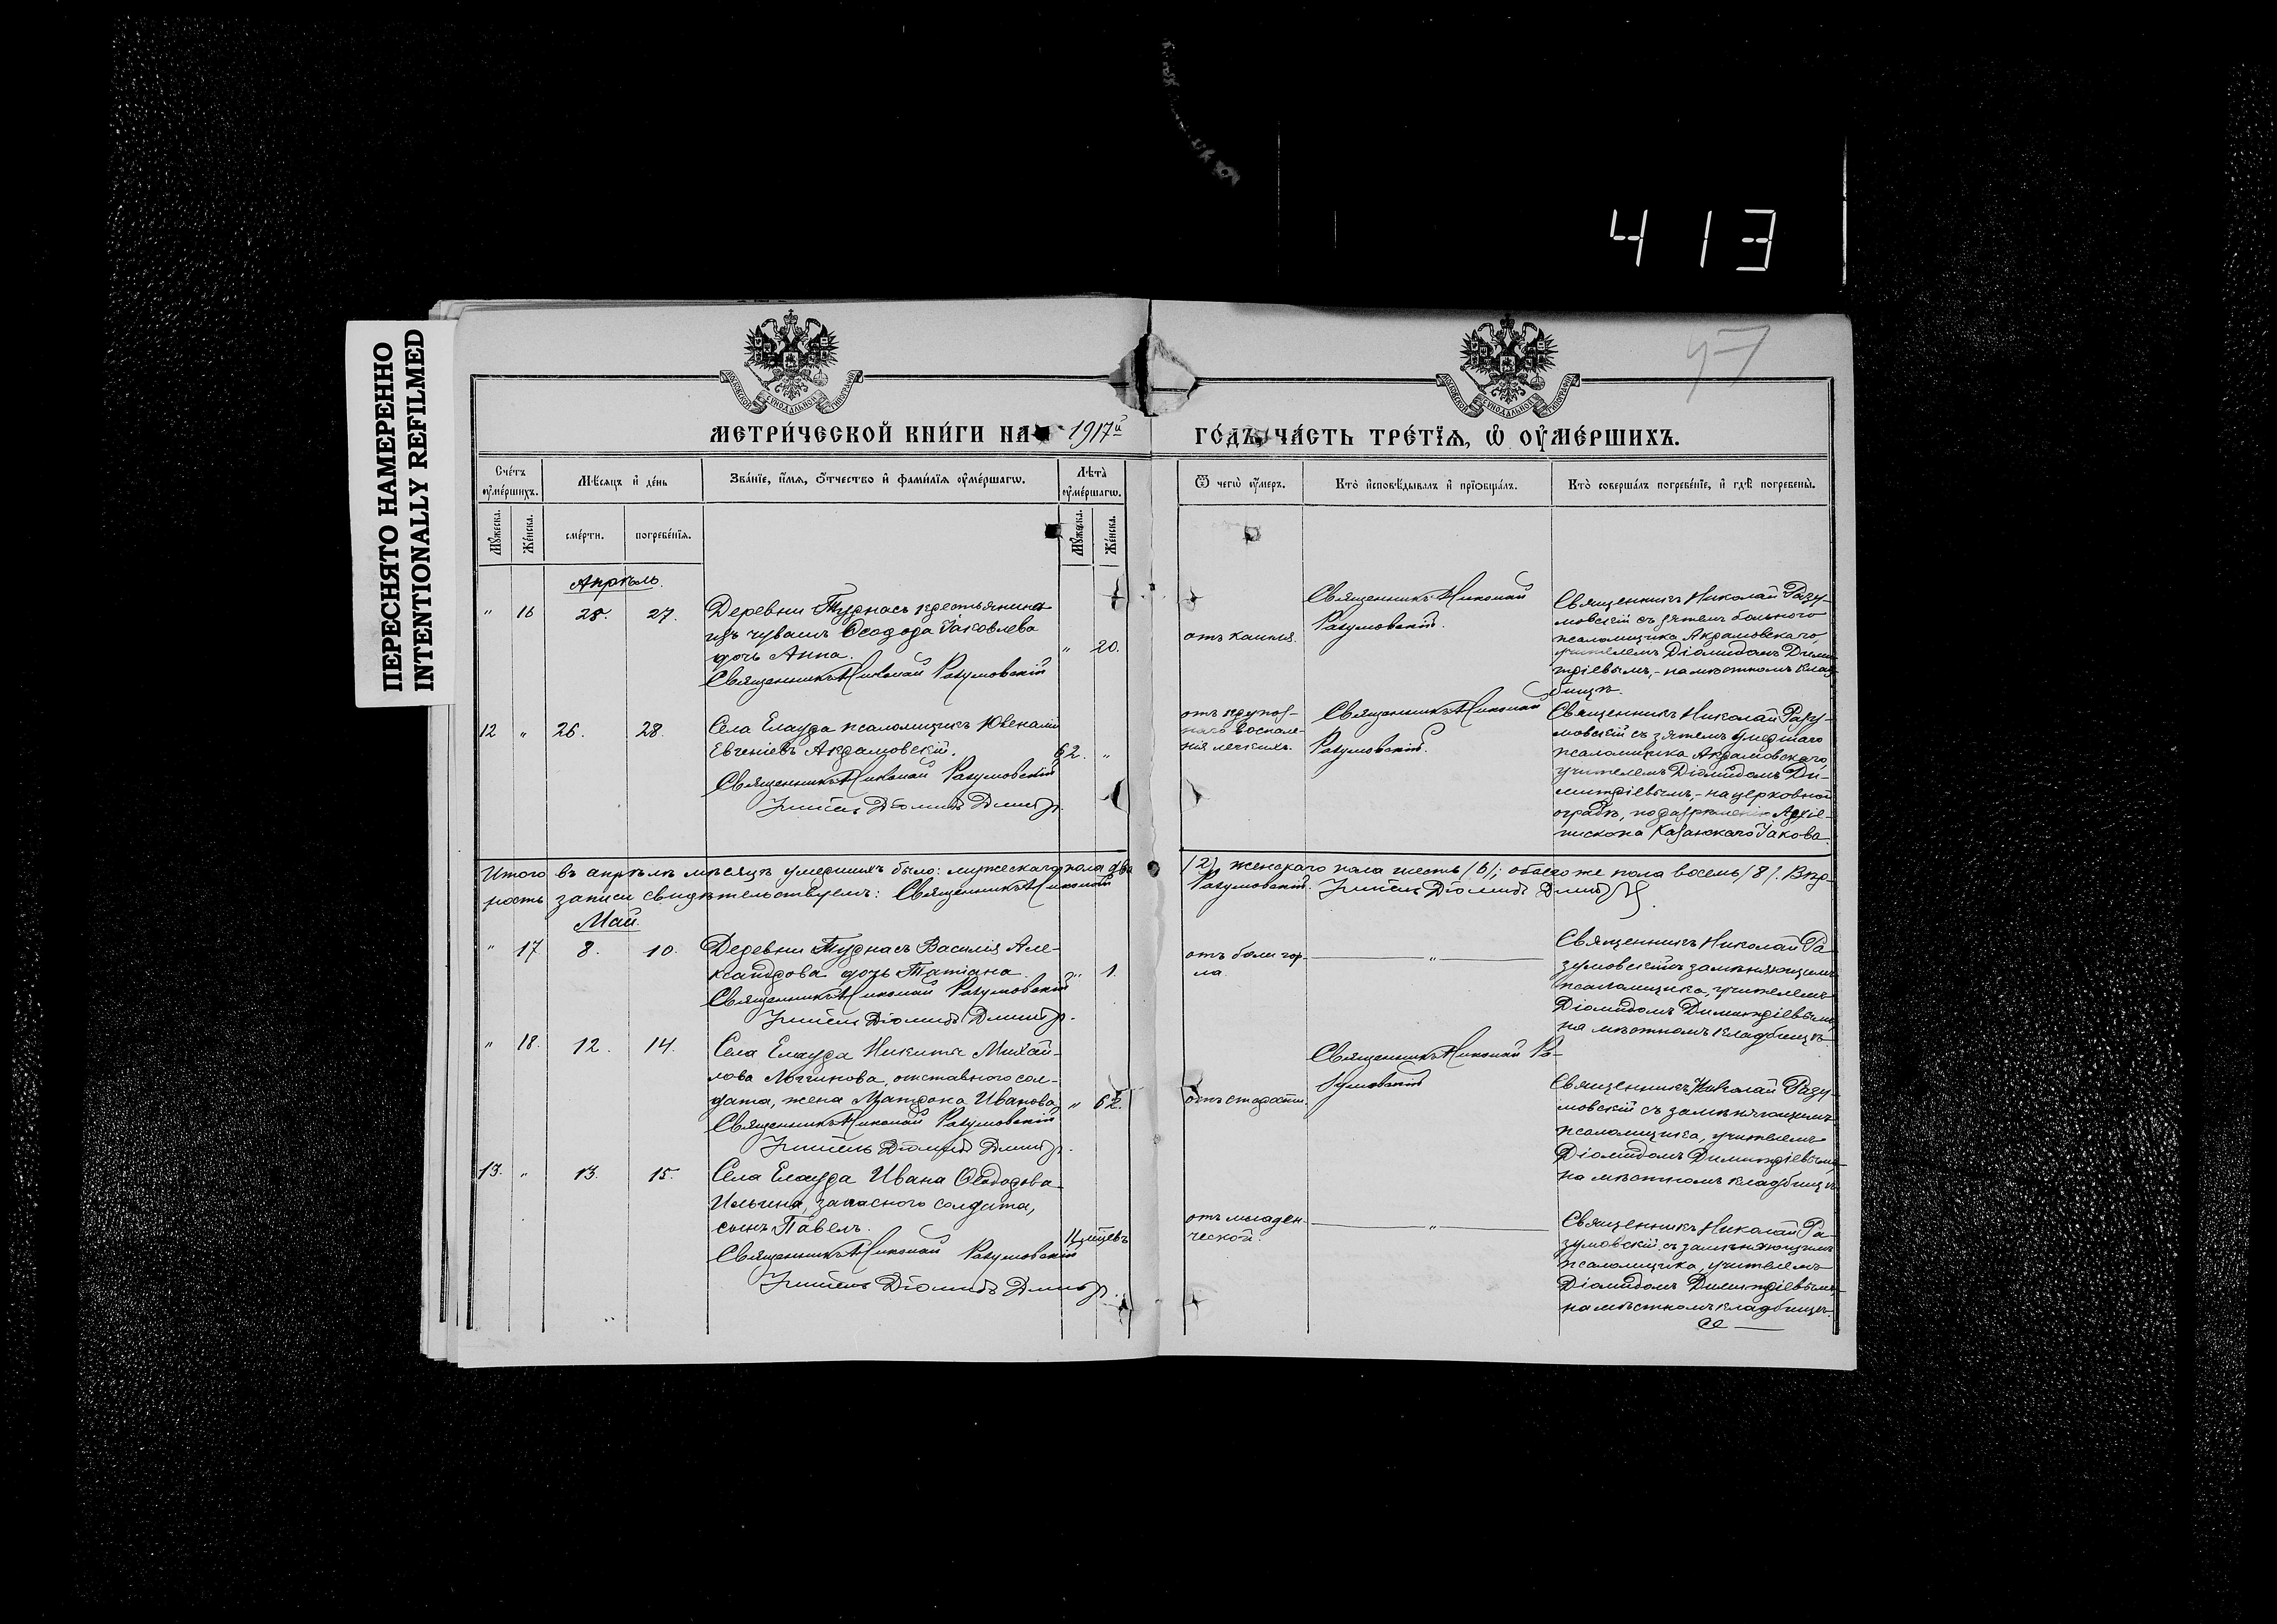 4 13
ПЕРЕСНЯТО НАМЕРЕННО
INTENTIONALLY REFILMED
МЕТРИ́ЧЕСКОЙ КНИ́ГИ НА 1917й
ГО́ДЪ, ЧА́СТЬ ТРЕ́ТЇѦ, Ѡ҆ ОУ҆МЕ́РШИХЪ.
Сче́тъ оумершихъ.
Мѣсяцъ и день
Званіе, имя, отчество и фамилія оумершагѡ.
Лѣта оумершагѡ.
Ѿ чегѡ оумеръ.
Кто исповѣдывалъ и пріобщалъ.
Кто совершалъ погребеніе, и гдѣ погребены.
Мужеска.
Женска.
смерти.
погребенія.
Мужеска.
Женска.
Апрѣль.
" 16 25. 27.
Деревни Турнасъ крестьянина
изъ чувашъ Ѳеодора Іаковлева
дочь Анна.
Священникъ Николай Разумовскій
" 20.
отъ кашля.
Священникъ Николай
Разумовскій.
Священникъ Николай Разу-
мовскій съ зятемъ больного
псаломщика Акрамовскаго,
учителемъ Діомидомъ Дими-
тріевымъ, - на мѣстномъ клад-
бищѣ.
12 " 26. 28.
Села Елаура псаломщикъ Ювеналій
Евгеніевъ Акрамовскій.
Священникъ Николай Разумовскій
Учитель Діомидъ
62. "
отъ крупоз-
наго воспале-
нія легкихъ.
Священникъ Николай
Разумовскій.
Священникъ Николай Разу-
мовскій съ зятемъ умершаго
псаломщика Акрамовскаго,
учителемъ Діомидомъ Ди-
митріевымъ, - на церковной
оградѣ, по разрѣшенію Архіе-
пископа Казанскаго Іакова.
Итого въ апрѣлѣ мѣсяцѣ умершихъ было: мужескаго пола два
/2/, женскаго пола шесть /6/; обоего же пола восемь /8/. Вѣр-
ность записи свидѣтельствуемъ: Священникъ Николай
Разумовскій. Учитель Діомидъ
Май.
" 17 8. 10.
Деревни Турнасъ Василія Але-
ксандрова дочь Татіана.
Священникъ Николай Разумовскій
Учитель Діомидъ
" 1.
отъ боли гор-
ла.
"
Священникъ Николай Ра-
зумовскій съ замѣняющимъ
псаломщика, учителемъ
Діомидомъ Димитріевымъ,
на мѣстномъ кладбищѣ.
" 18. 12. 14.
Села Елаура Никиты Михай-
лова Логинова, отставного сол-
дата, жена Матрона Иванова
Священникъ Николай Разумовскій
Учитель Діомидъ
" 62.
отъ старости.
Священникъ Николай Ра-
зумовскій
Священникъ Николай Разу-
мовскій съ замѣняющимъ
псаломщика, учителемъ
Діомидомъ Димитріевымъ,
на мѣстномъ кладбищѣ
13. " 13. 15.
Села Елаура Ивана Ѳеодорова
Ильина, запасного солдата,
сынъ Павелъ.
Священникъ Николай Разумовскій
Учитель Діомидъ
отъ младен-
ческой.
"
Священникъ Николай Ра-
зумовскій съ замѣняющимъ
псаломщика, учителемъ
Діомидомъ Димитріевымъ,
на мѣстномъ кладбищѣ.